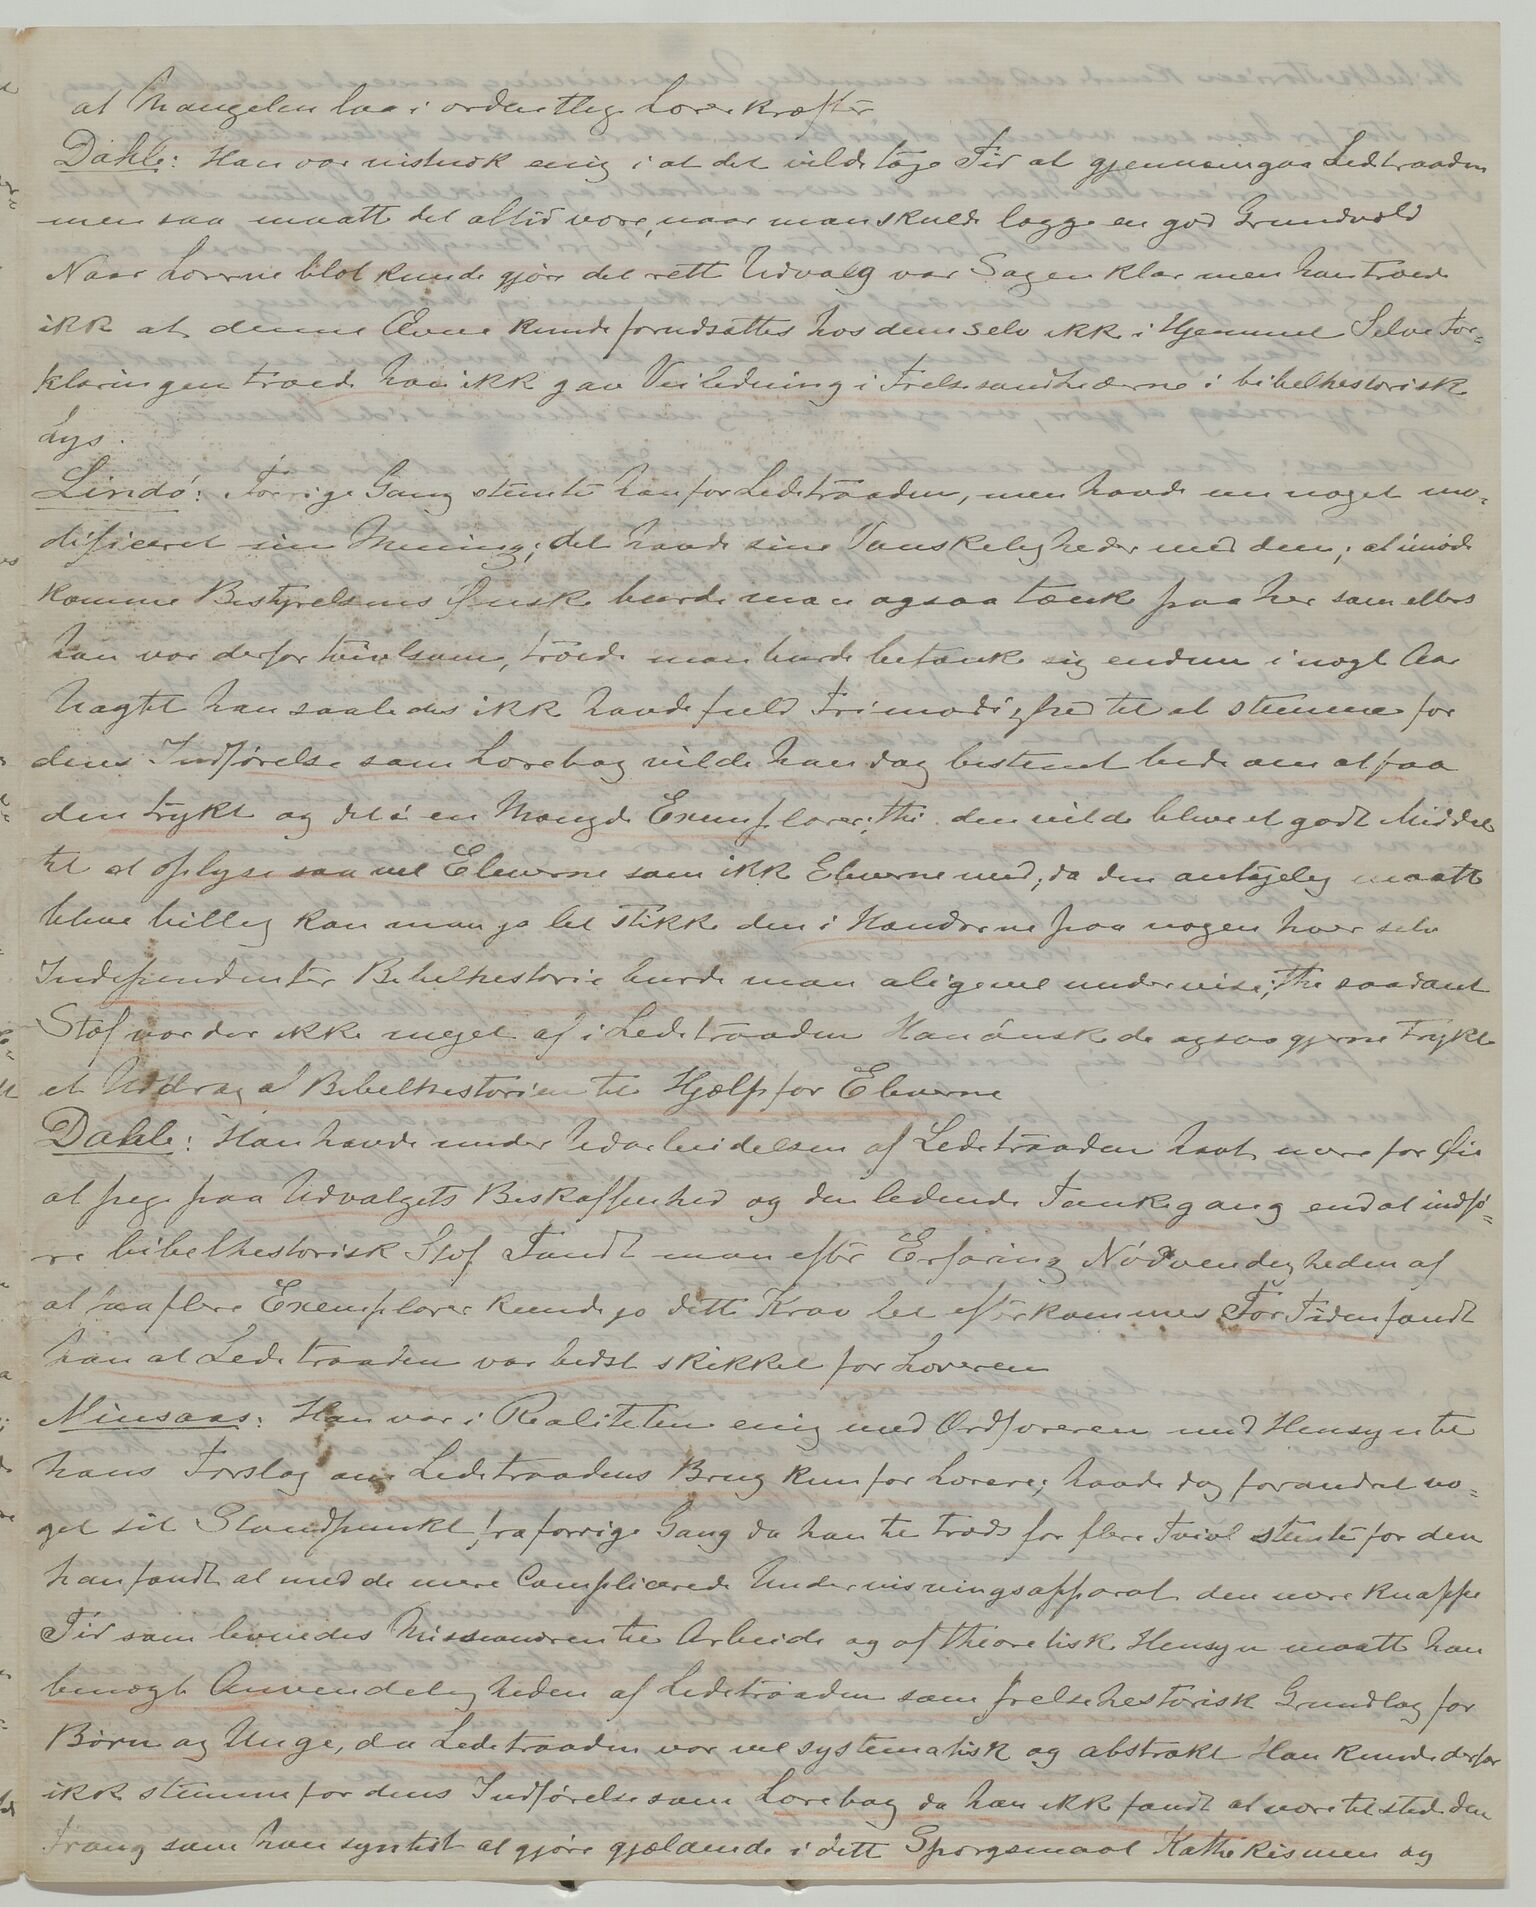 at Mangelen laa i ordentlige Lærerkræfter
Dahle: Han var vistnok enig i at det vilde tage Tid at gjennemgaa Ledetraaden
men saa maatte det altid være, naar man skulde lægge en god Grundvold
Naar Lærerne blot kunde gjøre det rette Udvalg var Sagen klar men han troede
ikke at denne Ævne kunde forudsættes hos dem selv ikke i Hjemmet Selve For-
klaringen troede han ikke gav Veiledning i Frelsesandhederne i bibelhistorisk
Lys.
Lindø: Forrige Gang stemte han for Ledetraaden, men havde nu noget mo-
dificeret sin Mening; det havde sine Vanskeligheder med den; at imøde
komme Bestyrelsens Ønske burde man ogsaa tænke paa her som ellers
han var derfor tvivlsom, troede man burde betænke sig endnu i nogle Aar
Uagtet han saaledes ikke havde fuld Frimodighed til at stemme for
dens Indførelse som Lærebog vilde han dog bestemt bede om at faa
den trykt og det i en Mængde Exemplarer; thi den vilde blive et godt Middel
til at oplyse saavel Eleverne som ikke Eleverne med; da den antagelig maatte
blive billig kan man jo let stikke den i Hænderne paa nogen hver selv
Independenter Bibelhistorie burde man aligevel undervise; thi saadant
Stof var der ikke meget af i Ledetraaden Han ønskede ogsaa gjerne trykt
et Uddrag af Bibelhistorien til Hjælp for Eleverne
Dahle: Han havde under Udarbeidelsen af Ledetraaden havt mere for Øie
at pege paa Udvalgets Beskaffenhed og den ledende Tankegang end at indfø-
re bibelhistorisk Stof Fandt man efter Erfaring Nødvendigheden af
at faa flere Exemplarer kunde jo dette Krav let efterkommes For Tiden fandt
han at Ledetraaden var bedst skikket for Læreren
Nilsaas: Han var i Realiteten enig med Ordføreren med Hensyn til
hans Forslag om Ledetraadens Brug kun for Lærere; havde dog forandret no-
get sit Standpunkt fra forrige Gang da han til trods for flere Tvivl stemte for den
han fandt at med de mere Complicerede Undervisningsapparat den mere knappe
Tid som levnedes Missionæren til Arbeide og af theoretiske Hensyn maatte han
benægte Anvendeligheden af Ledetraaden som frelsehistorisk Grundlag for
Børn og Unge, da Ledetraaden var vel systematisk og abstrakt Han kunde derfor
ikke stemme for dens Indførelse som Lærebog da han ikke fandt at være tilstede den
Trang som han syntes at gjøre gjældende i dette Spørgsmaal Kathekismen og